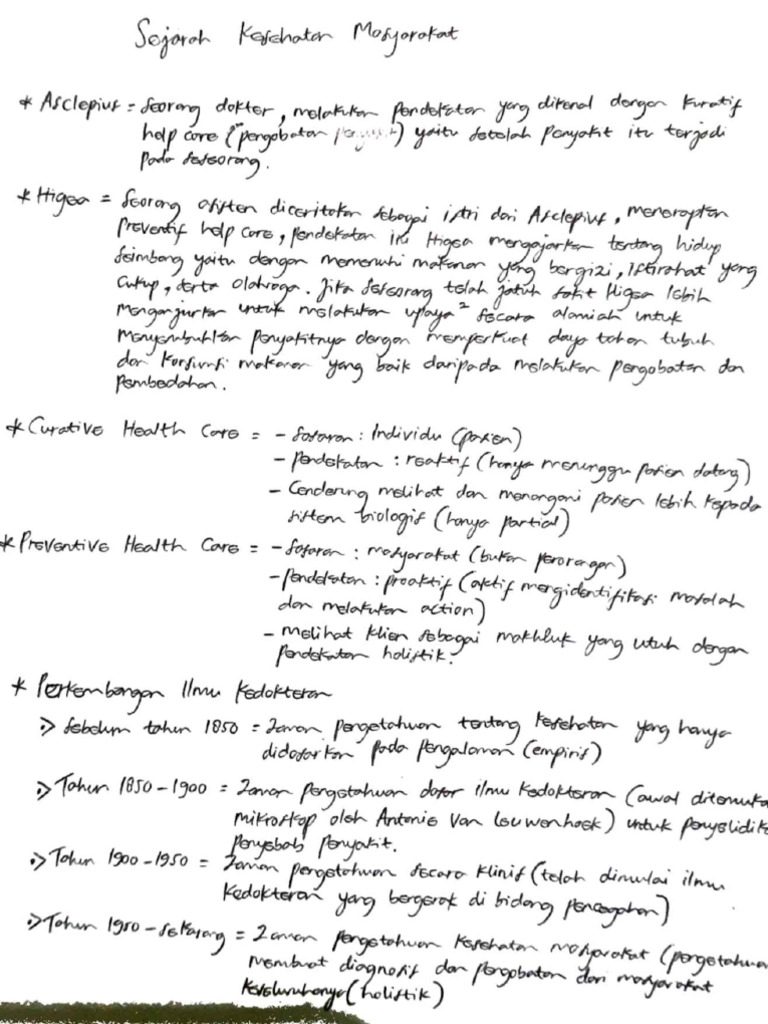 Sejarah Kesehatan Masyarakat
* Asclepius = Seorang dokter, melakukan pendekatan yang dikenal dengan kuratif
help care ("pengobatan penyakit") yaitu setelah penyakit itu terjadi
pada seseorang.
* Higea = Seorang asisten diceritakan sebagai istri dari Asclepius, menerapkan
preventif help care, pendekatan ini Higea mengajarkan tentang hidup
seimbang yaitu dengan memenuhi makanan yang bergizi, istirahat yang
cukup, serta olahraga. Jika seseorang telah jatuh sakit Higea lebih
menganjurkan untuk melakukan upaya² secara alamiah untuk
menyembuhkan penyakitnya dengan memperkuat daya tahan tubuh
dan konsumsi makanan yang baik daripada melakukan pengobatan dan
pembedahan.
* Curative Health Care = - Sasaran : Individu (pasien)
- pendekatan : reaktif (hanya menunggu pasien datang)
- Cenderung melihat dan menangani pasien lebih kepada
sistem biologis (hanya partial)
* Preventive Health Care = - Sasaran : masyarakat (bukan perorangan)
- pendekatan : proaktif (aktif mengidentifikasi masalah
dan melakukan action)
- melihat klien sebagai makhluk yang utuh dengan
pendekatan holistik.
* Perkembangan Ilmu Kedokteran
:> Sebelum tahun 1850 = Zaman pengetahuan tentang kesehatan yang hanya
didasarkan pada pengalaman (empiris)
:> Tahun 1850-1900 = Zaman pengetahuan dasar ilmu kedokteran (awal ditemuka
mikroskop oleh Antonie Van Leuwenhoek) untuk penyelidika
penyebab penyakit.
:> Tahun 1900-1950 = Zaman pengetahuan secara klinis (telah dimulai ilmu
kedokteran yang bergerak di bidang pencegahan)
:> Tahun 1950-sekarang = Zaman pengetahuan kesehatan masyarakat (pengetahuan
membuat diagnosis dan pengobatan dari masyarakat
keseluruhanya (holistik)